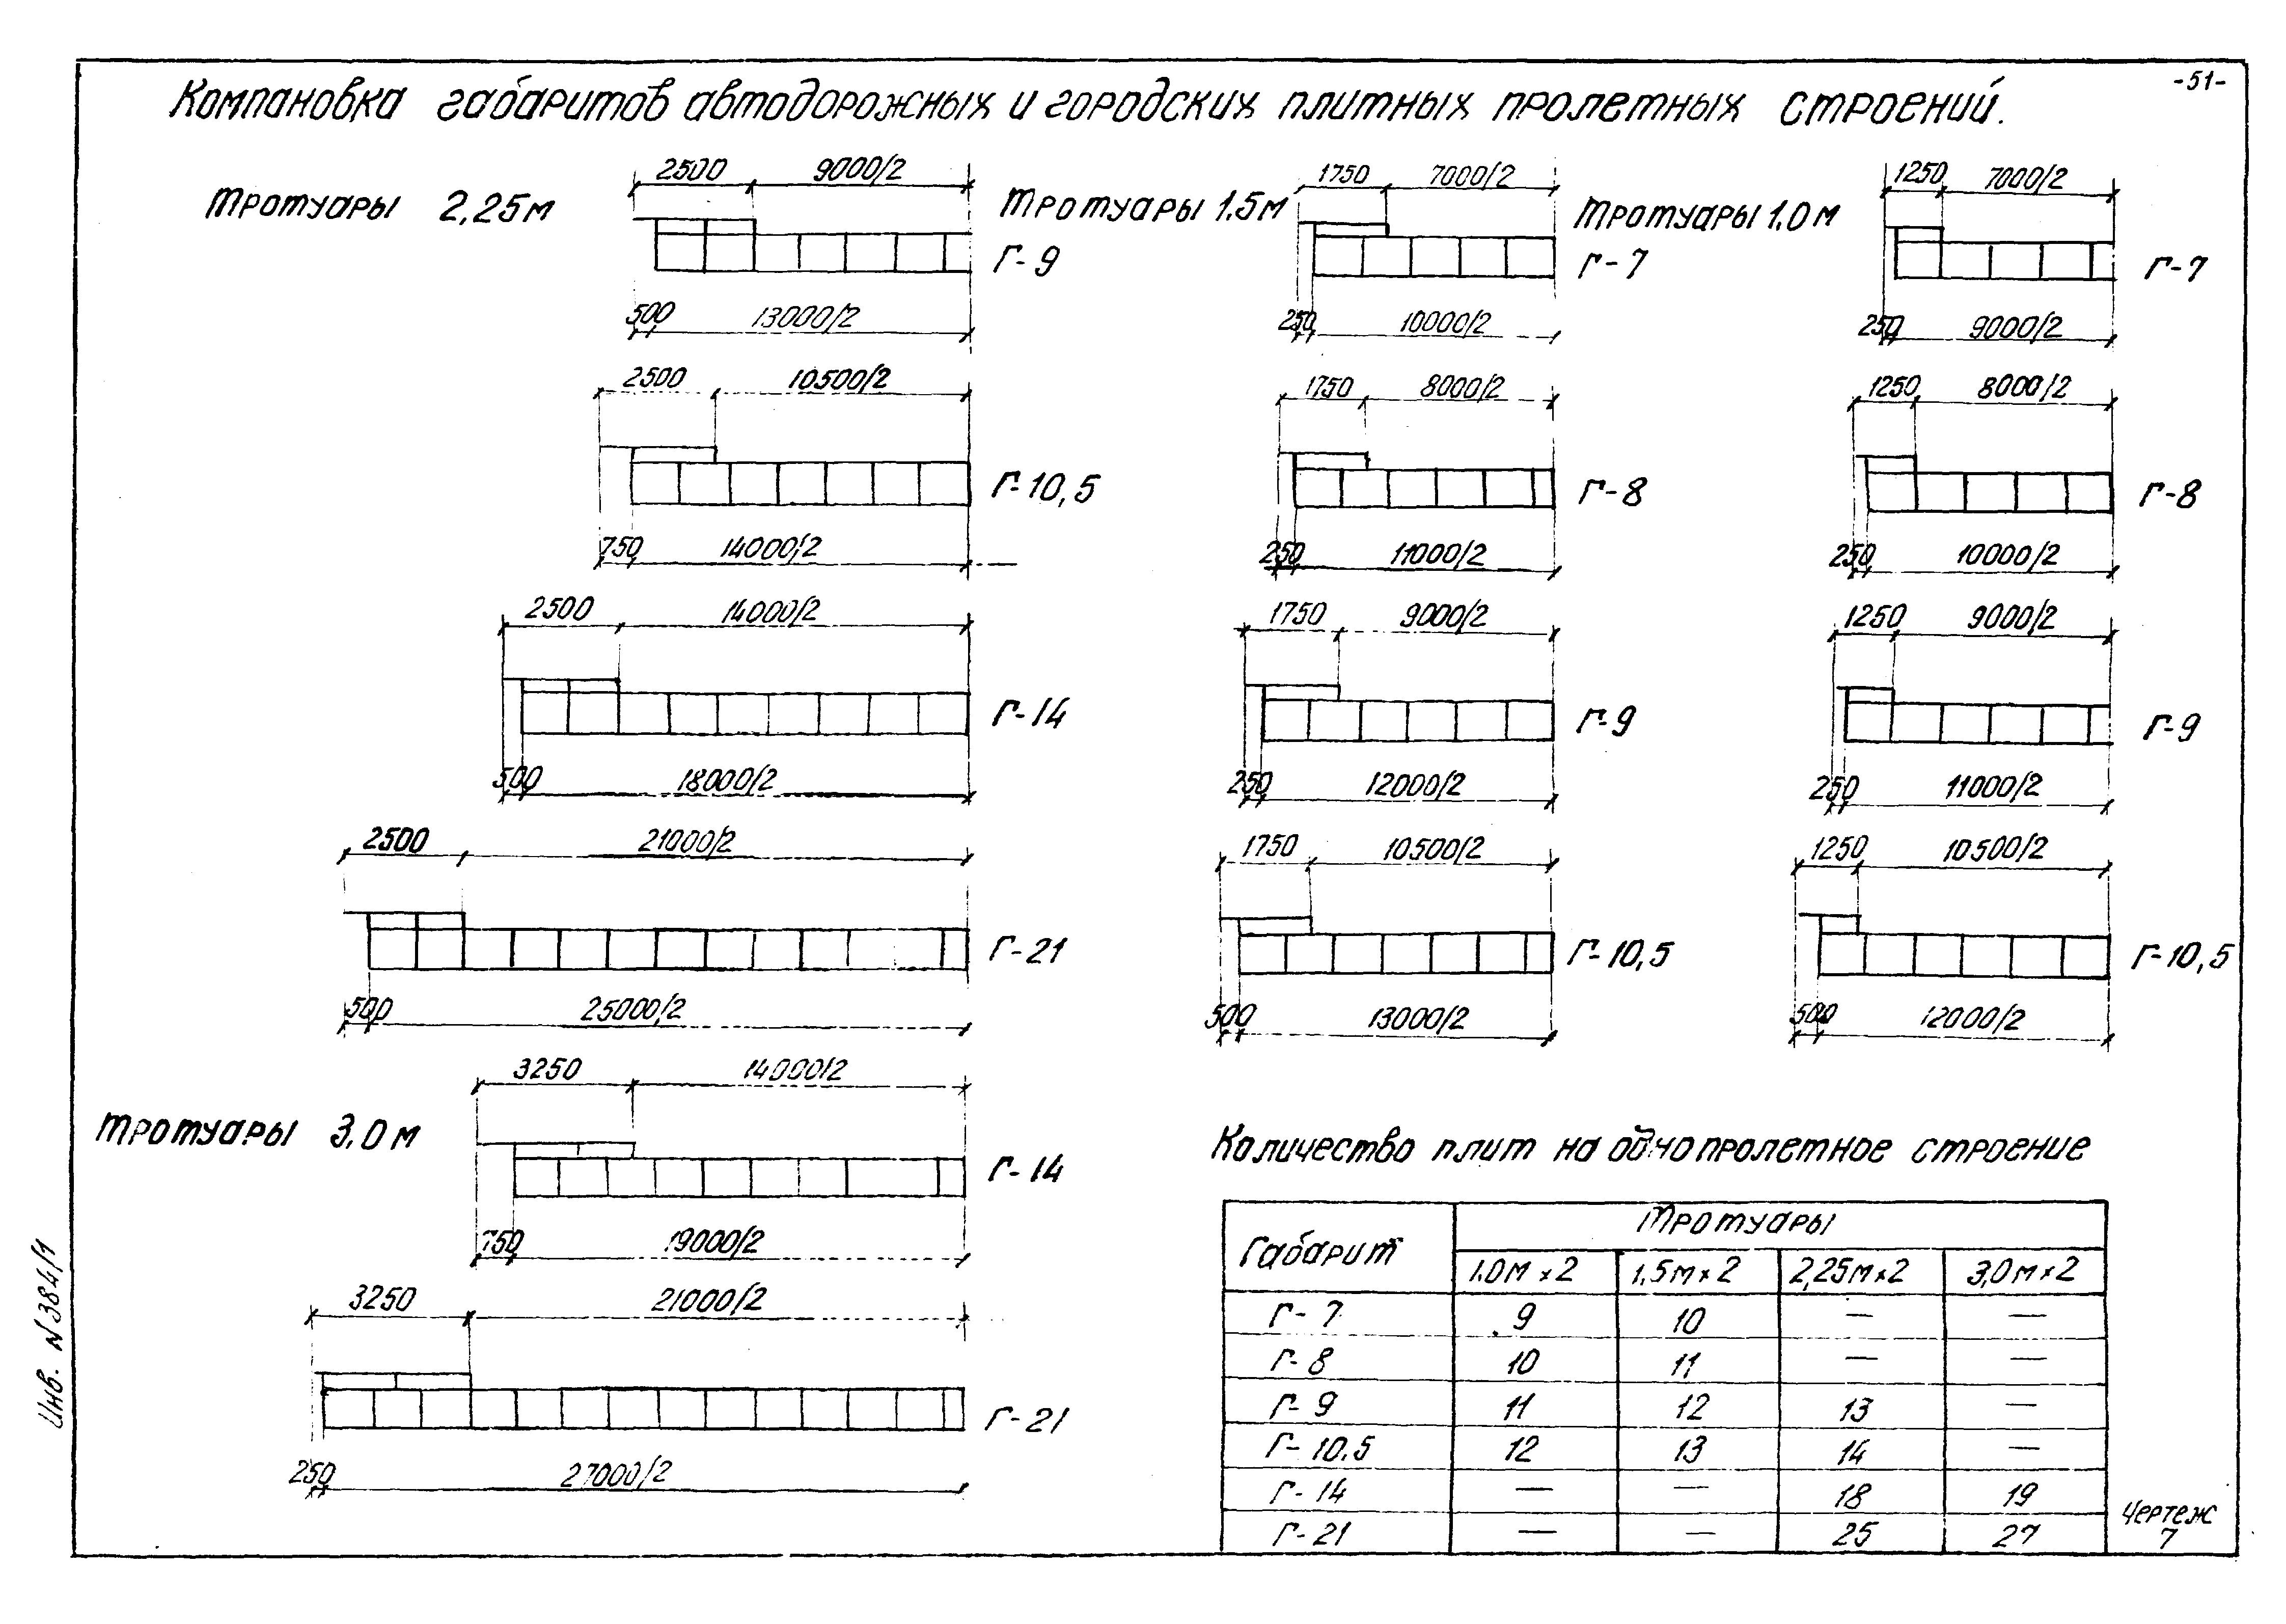 -51-
Компановка габаритов автодорожных и городских плитных пролетных строений.
Тротуары 2,25м
2500 9000/2
Г-9
500 13000/2
2500 10500/2
Г-10,5
750 14000/2
2500 14000/2
Г-14
500 18000/2
2500 21000/2
Г-21
500 25000/2
Тротуары 3,0м
3250 14000/2
Г-14
750 19000/2
3250 21000/2
Г-21
250 27000/2
Тротуары 1,5м
1750 7000/2
Г-7
250 10000/2
1750 8000/2
Г-8
250 11000/2
1750 9000/2
Г-9
250 12000/2
1750 10500/2
Г-10,5
500 13000/2
Тротуары 1,0м
1250 7000/2
Г-7
250 9000/2
1250 8000/2
Г-8
250 10000/2
1250 9000/2
Г-9
250 11000/2
1250 10500/2
Г-10,5
500 12000/2
Количество плит на однопролетное строение
Габарит Тротуары
1,0м x 2 1,5м x 2 2,25м x 2 3,0м x 2
Г-7 9 10 — —
Г-8 10 11 — —
Г-9 11 12 13 —
Г-10,5 12 13 14 —
Г-14 — — 18 19
Г-21 — — 25 27
Чертеж
7
Инв. N384/1